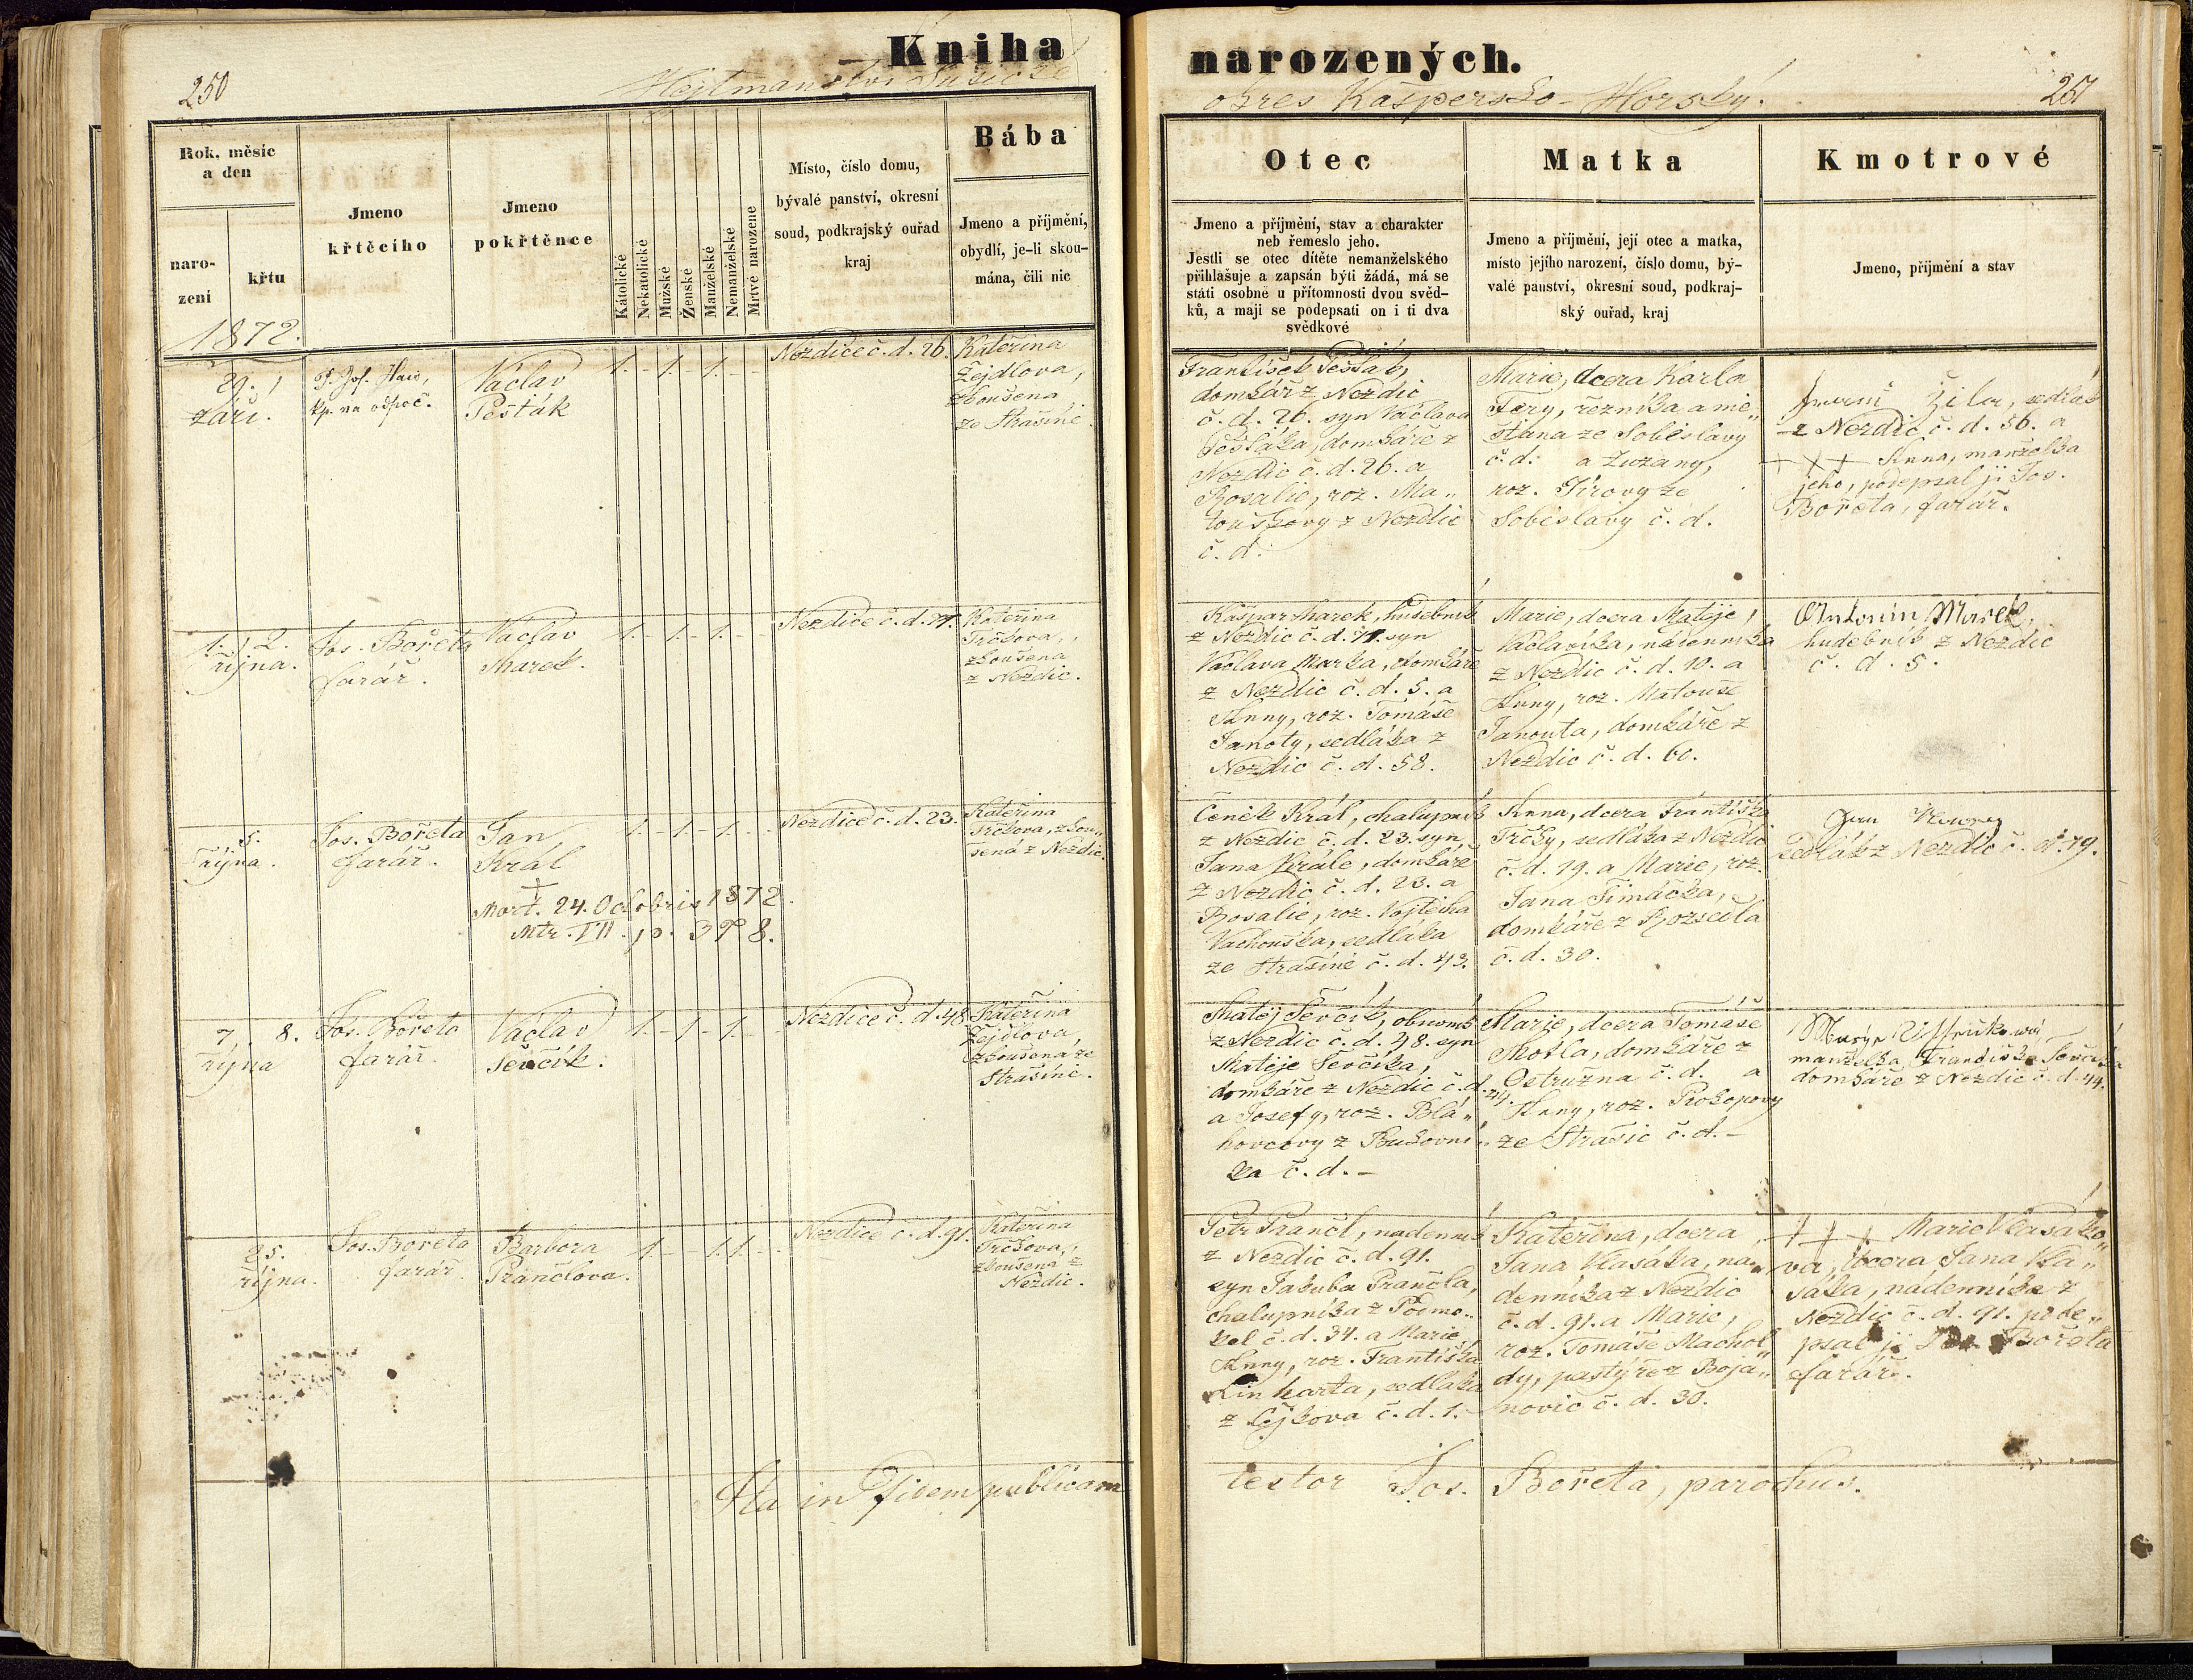 Kniha narozených.
250
Hejtmanství Sušické
okres Kašpersko-Horský.
251
Rok, měsíc
a den
naro-
zení
křtu
Jmeno
křtěcího
Jmeno
pokřtěnce
Katolické
Nekatolické
Mužské
Ženské
Manželské
Nemanželské
Mrtvě narozene
Místo, číslo domu,
bývalé panství, okresní
soud, podkrajský ouřad
kraj
Bába
Jmeno a příjmění,
obydlí, je-li skou-
mána, čili nic
Otec
Jmeno a příjmění, stav a charakter
neb řemeslo jeho.
Jestli se otec dítěte nemanželského
přihlašuje a zapsán býti žádá, má se
státi osobně u přítomnosti dvou svěd-
ků, a mají se podepsati on i ti dva
svědkové
Matka
Jmeno a příjmění, její otec a matka,
místo jejího narození, číslo domu, bý-
valé panství, okresní soud, podkraj-
ský ouřad, kraj
Kmotrové
Jmeno, příjmění a stav
1872.
29.
září.
P. Jos.
kp. na odpoč.
Václav
Pešták
1. - 1. - 1. - -
Nezdice č. d. 26.
Kateřina
Zejdlova,
zkoušena
ze Strašíně.
František Pešták,
domkář z Nezdic
č. d. 26. syn Václava
Peštáka, domkáře z
Nezdic č. d. 26. a
Rosalie, roz. Ma„
touškovy z Nezdic
č. d.
Marie, dcera Karla
Fery, řezníka a mě„
šťana ze Soběslavy
č. d. a Zuzany,
roz. Jírovy ze
Soběslavy č. d.
Žila, sedlák
z Nezdic č. d. 56. a
+ + + Anna, manželka
jeho, podepsal ji Jos.
Bořeta, farář.
1. 2.
října.
Jos. Bořeta
farář.
Václav
Marek.
1. - 1. - 1. - -
Nezdice č. d. 71.
Kateřina
Trčkova,
zkoušena
z Nezdic.
Kašpar Marek, hudebník
z Nezdic č. d. 71. syn
Václava Marka, domkáře
z Nezdic č. d. 5. a
Anny, roz. Tomáše
Janoty, sedláka z
Nezdic č. d. 58.
Marie, dcera Matěje
Václavíka, nádenníka
z Nezdic č. d. 10. a
Anny, roz. Matouše
Janouta, domkáře z
Nezdic č. d. 60.
Antonín Marek,
hudebník z Nezdic
č. d. 5.
5.
října.
Jos. Bořeta
farář.
Jan
Král
+
Mort. 24. Octobris 1872.
Mtr. III. p. 398.
1. - 1. - 1. - -
Nezdice č. d. 23.
Kateřina
Trčkova, zkou„
šená z Nezdic.
Čeněk Král, chalupník
z Nezdic č. d. 23. syn
Jana Krále, domkáře
z Nezdic č. d. 23. a
Rosalie, roz. Vojtěcha
Vachouška, sedláka
ze Strašíně č. d. 43.
Anna, dcera Františka
Trčky, sedláka z Nezdic
č. d. 19. a Marie, roz.
Jana Šimáčka,
domkáře z Rozsedla
č. d. 30.
Jan
sedlák z Nezdic č. d. 79.
7. 8.
října
Jos. Bořeta
farář.
Václav
Ševčík.
1. - 1. - 1. - -
Nezdice č. d. 48.
Kateřina
Zejdlova,
zkoušena ze
Strašíně.
Matěj Ševčík, obuvník
z Nezdic č. d. 48. syn
Matěje Ševčíka,
domkáře z Nezdic č. d. 44.
a Josefy, roz. Blá„
hovcovy z Bukovní„
ka č. d. –
Marie, dcera Tomáše
Motla, domkáře z
Ostružna č. d. a
Anny, roz. Prokopovy
ze Strašic č. d. –
manželka Františka Ševčíka
domkáře z Nezdic č. d. 44.
25.
října.
Jos. Bořeta
farář.
Barbora
Prančlova.
1. - - 1. 1. - -
Nezdice č. d. 91.
Kateřina
Trčkova,
zkoušena z
Nezdic.
Petr Prančl, nádenník
z Nezdic č. d. 91.
syn Jakuba Prančla,
chalupníka z Podmo„
kel č. d. 34. a Marie
Anny, roz. Františka
Linharta, sedláka
z Lejkova č. d. 1.
Kateřina, dcera
Jana Vlasáka, ná„
denníka z Nezdic
č. d. 91. a Marie,
roz. Tomáše Machol„
dy, pastýře z Boja„
novic č. d. 30.
+ + + Marie Vlasáko„
va, dcera Jana Vla„
sáka, nádenníka z
Nezdic č. d. 91. pode„
psal ji Jos. Bořeta
farář.
Ita in fidem publicam testor Jos. Bořeta, parochus.